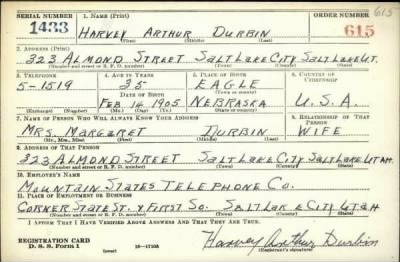 615
SERIAL NUMBER 1. NAME (Print) ORDER NUMBER
1433 HARVEY ARTHUR DURBIN 615
(First) (Middle) (Last)
2. ADDRESS (Print)
323 ALMOND STREET SALT LAKE CITY SALT LAKE UT.
(Number and street or R. F. D. number) (Town) (County) (State)
3. TELEPHONE 4. AGE IN YEARS 5. PLACE OF BIRTH 6. COUNTRY OF CITIZENSHIP
5-1519 35 EAGLE
DATE OF BIRTH (Town or county)
FEB 14 1905 NEBRASKA U.S.A.
(Exchange) (Number) (Mo.) (Day) (Yr.) (State or country)
7. NAME OF PERSON WHO WILL ALWAYS KNOW YOUR ADDRESS 8. RELATIONSHIP OF THAT PERSON
MRS. MARGARET DURBIN WIFE
(Mr., Mrs., Miss) (First) (Middle) (Last)
9. ADDRESS OF THAT PERSON
323 ALMOND STREET SALT LAKE CITY SALT LAKE UTAH
(Number and street or R. F. D. number) (Town) (County) (State)
10. EMPLOYER'S NAME
MOUNTAIN STATES TELEPHONE CO.
11. PLACE OF EMPLOYMENT OR BUSINESS
CORNER STATE ST. & FIRST SO. SALT LAKE CITY UTAH
(Number and street or R. F. D. number) (Town) (County) (State)
I AFFIRM THAT I HAVE VERIFIED ABOVE ANSWERS AND THAT THEY ARE TRUE.
REGISTRATION CARD
D. S. S. Form 1 (over) 16—17105 Harvey Arthur Durbin
(Registrant's signature)